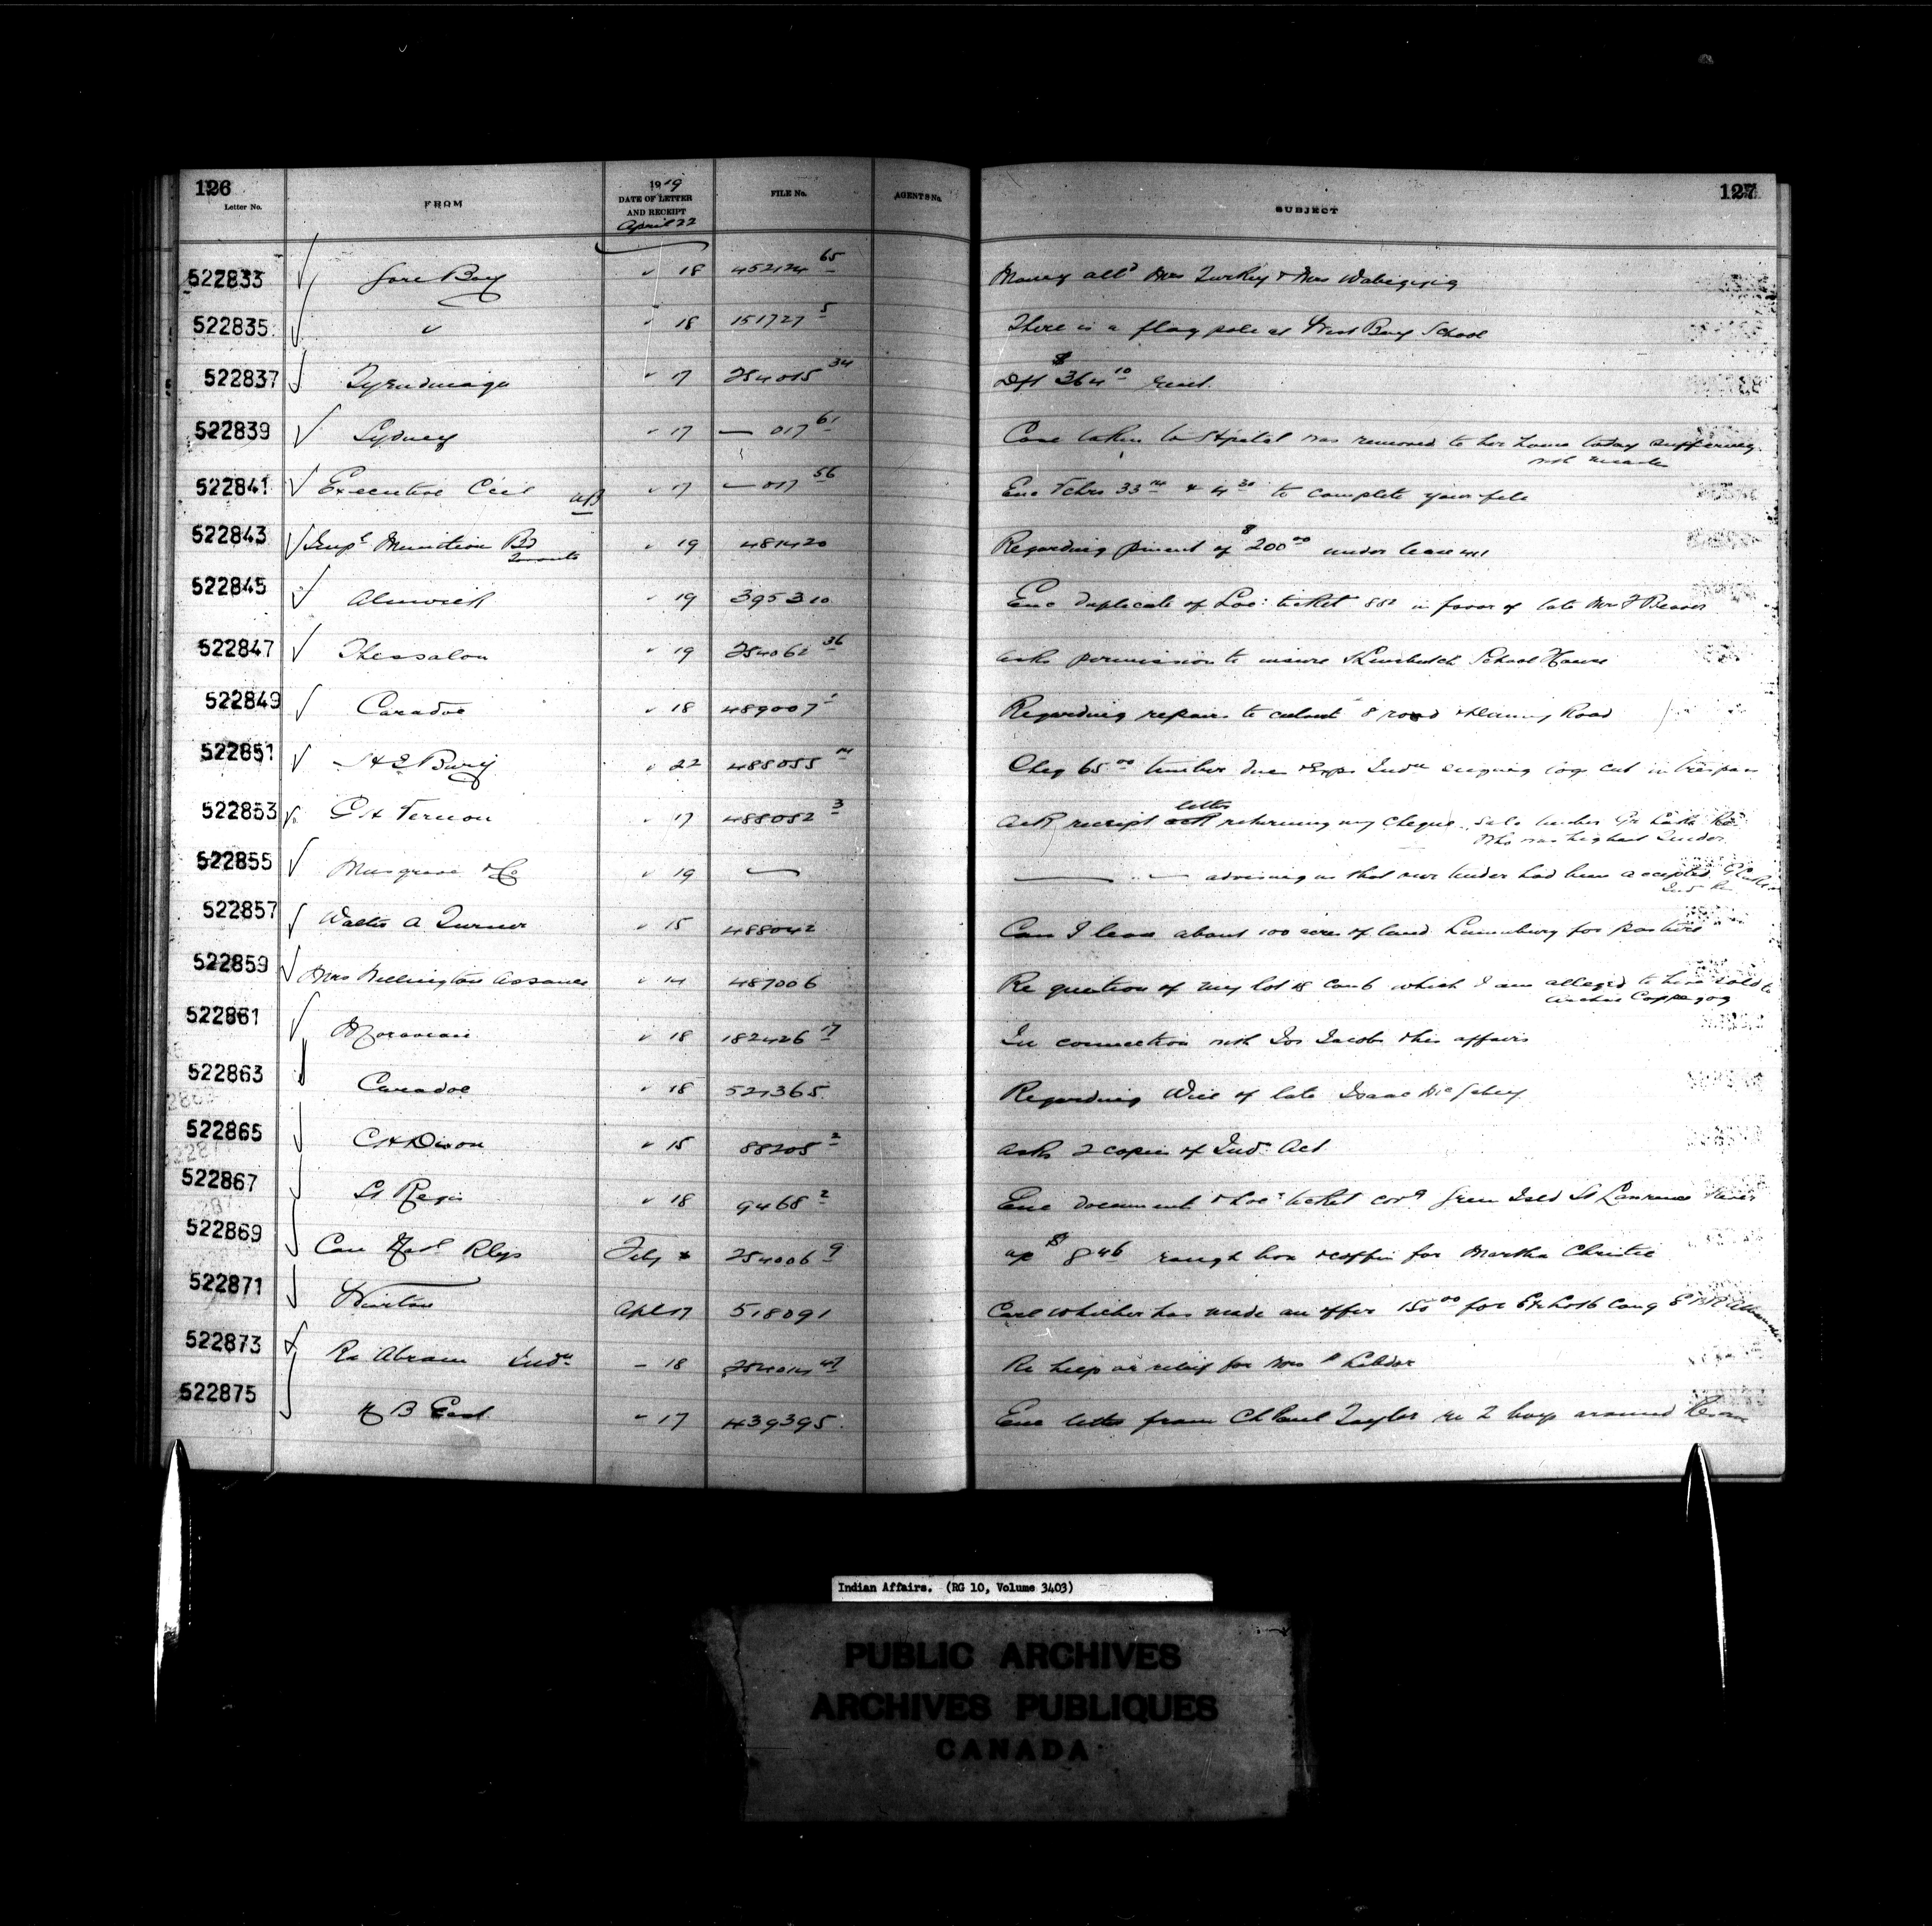 126
127
Letter No.
FROM
1919
DATE OF LETTER
AND RECEIPT
April 22
FILE No.
AGENTS No.
SUBJECT
522833 Gore Bay " 18 452124 65 Money all'd Mrs Turkey & Mrs Wabegijig
522835 " " 18 151727 5 There is a flag pole at West Bay School
522837 Tyendinaga " 17 254015 34 Dft $364 10 rent.
522839 Sydney " 17 — 017 61 Case taken to Hpital was removed to her home today suffering
with measles
522841 Executive Cecil " 17 — 017 56 Enc Vchrs 33 & 4 30 to complete your file
522843 Impl Munition Bd " 19 481420 Regarding pment of $200 00 under lease
Toronto
522845 Alnwick " 19 395310 Enc duplicate of Loc: ticket in favor of late Mrs F Beaver
522847 Thessalon " 19 254062 36 Asks permission to insure School House
522849 Caradoc " 18 489007 Regarding repairs to culvert 8 road Road
522851 H J Bury " 22 485055 14 Chq 65 00 timber dues Inds logs cut in trespass
522853 C H Vernon " 17 488052 3 Ack receipt letter returning my cheque
who was highest Tender
522855 Musgrave & Co " 19 — — " — advising us that our tender had been accepted
522857 Walter A Turner " 15 488042 Can I lease about 100 acres of land Lunenburg for pasture
522859 Mrs Wellington Assance " 14 487006 Re question of my lot 18 con 6 which I am alleged to have sold to
Copegog
522861 Moravian " 18 182426 17 In connection with Jos Jacobs & his affairs
522863 Caradoc " 18 521365 Regarding Will of late Isaac
522865 C H Dixon " 15 88205 2 Asks 2 copies of Ind: Act
522867 St Regis " 18 9468 2 Enc document & Loc: ticket Isld St Lawrence River
522869 Can Natl Rlys Feby 254006 9 ap $8 46 rough box & coffin for Martha Christie
522871 Wiarton Apl 17 518091 Carl Whicher has made an offer 150 00 for
522873 Ra Abram Indn – 18 254014 47 Re help or relief for Mrs
522875 H B East " 17 439395 Enc letter from Ch Paul Taylor re 2 boys around
Indian Affairs. (RG 10, Volume 3403)
PUBLIC ARCHIVES
ARCHIVES PUBLIQUES
CANADA